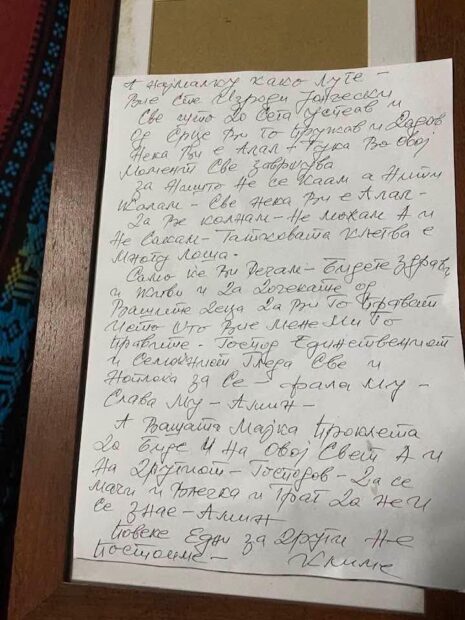 А најмалку како луѓе -
Вие сте Изроди Јанѓески
Све што до сега успеав и
од Срце Ви Го Пружав и Дадов
Нека Ви е Алал + Тука Во Овој
Момент Све завршува
За Ништо Не се Каам а Ниту
Жалам - Све Нека Ви е Алал -
Да Ве колнам - Не Можам А и
Не Сакам - Татковата Клетва е
Многу Лоша.
Само Ке Ви Речам - Бидете Здрави
и Живи и Да Дочекате од
Вашите Деца Да Ви Го Прават
Истото Што Вие Мене Ми Го
Правите - Господ Единствениот
и Семожниот Гледа Све и
Наплака За Се - фала Му -
Слава Му - Амин -
А Вашата Мајка Проклета
Да Биде И На Овој Свет А и
На Другиот - Господов - Да се
Мачи и Влечка и Гроб Да Не И
Се Знае - Амин
Повеке Еден за Други Не
Постоиме - Климе